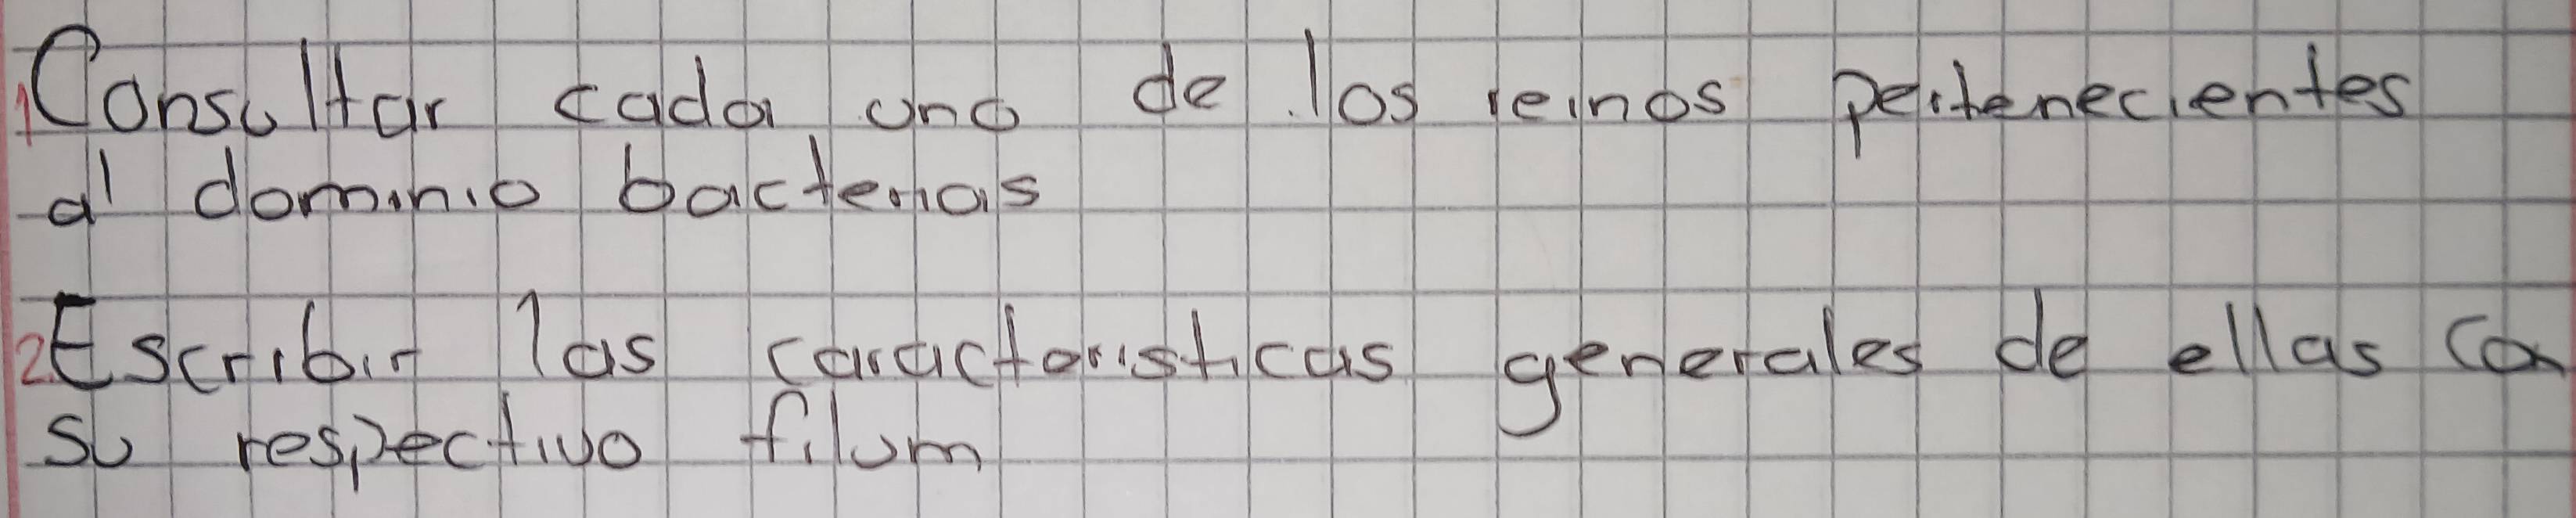 1 Consultar cada uno de los reinos pertenecientes
al dominio bacterias
2. Escribir las caracteristicas generales de ellas con
su respectivo filum